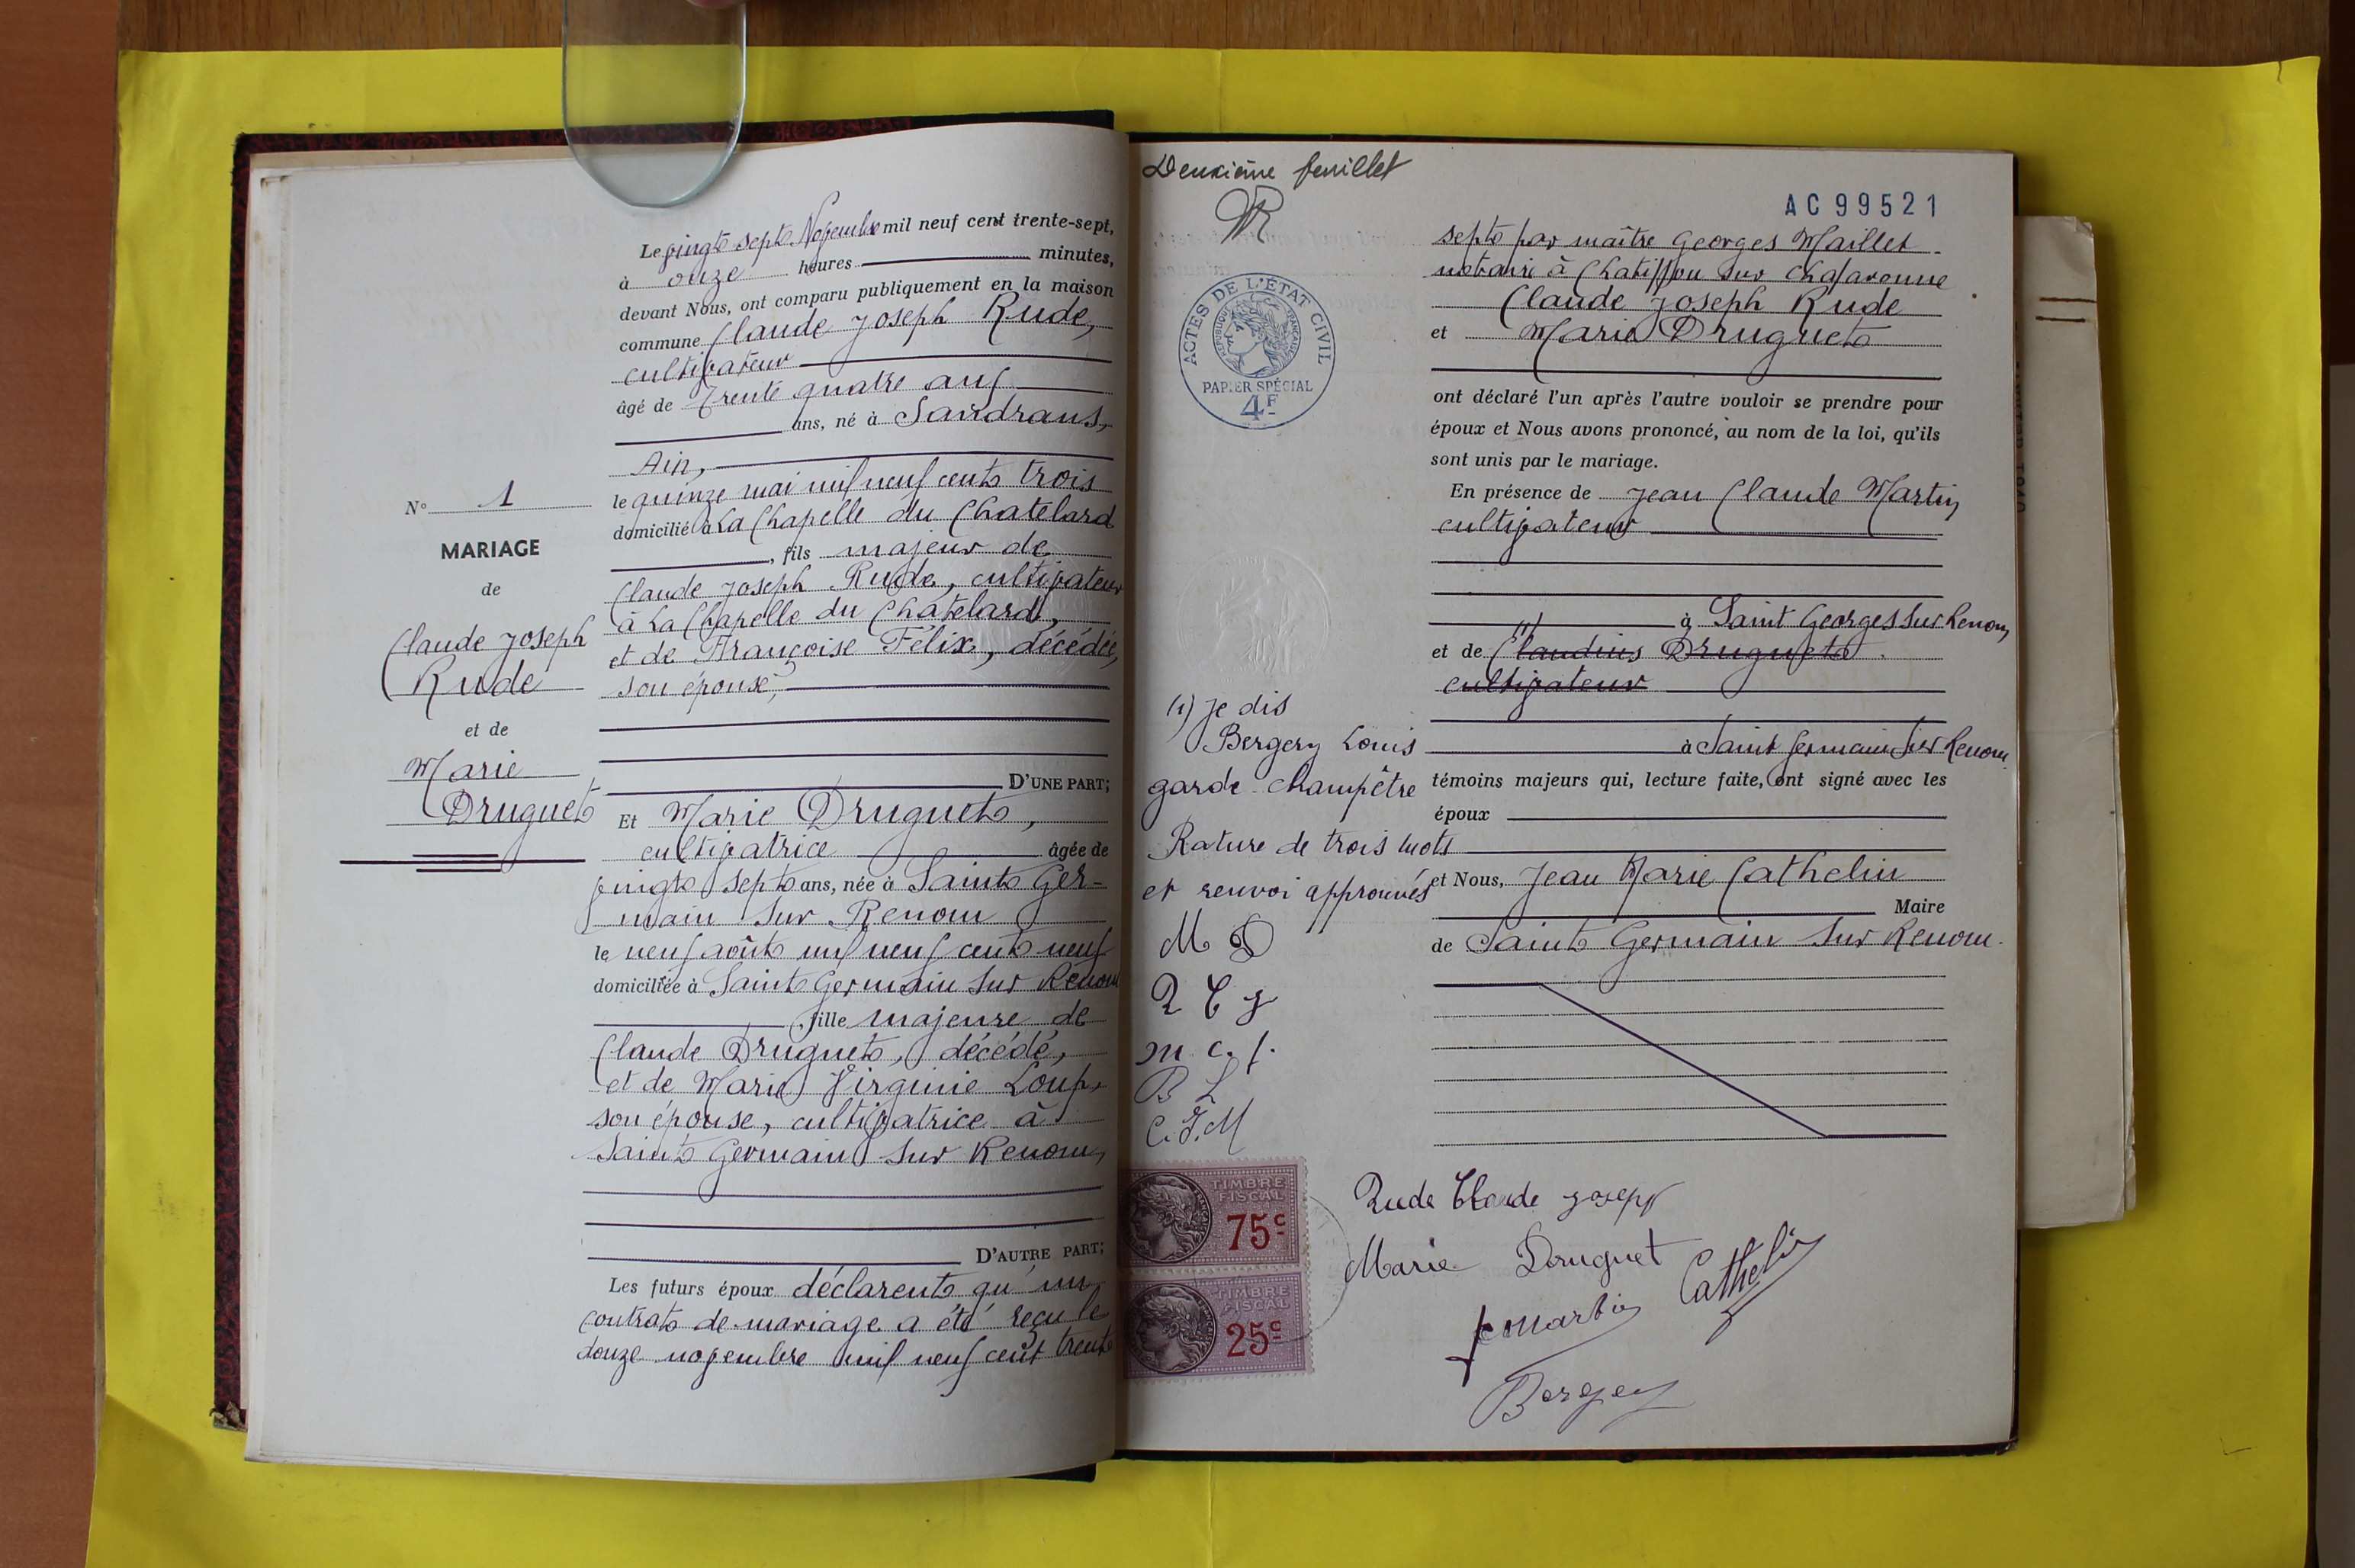 N° 1
MARIAGE
de
Claude Joseph
Rude
et de
Marie
Druguet
Le vingt sept Novembre mil neuf cent trente-sept,
à onze heures minutes,
devant Nous, ont comparu publiquement en la maison
commune Claude Joseph Rude,
cultivateur
âgé de trente quatre ans
ans, né à Sandrans,
Ain,
le quinze mai mil neuf cent trois
domicilié à La Chapelle du Chatelard
, fils majeur de
Claude Joseph Rude, cultivateur
à La Chapelle du Chatelard,
et de Françoise Félix, décédée,
son épouse,
D'UNE PART;
Et Marie Druguet,
cultivatrice âgée de
vingt sept ans, née à Saint Ger-
main sur Renom
le neuf août mil neuf cent neuf
domiciliée à Saint Germain sur Renom
, fille majeure de
Claude Druguet, décédé,
et de Marie Virginie Loup,
son épouse, cultivatrice à
Saint Germain sur Renom,
D'AUTRE PART;
Les futurs époux déclarent qu'un
contrat de mariage a été reçu le
douze novembre mil neuf cent trente
Deuxième feuillet
AC 99521
ACTES DE L'ÉTAT CIVIL
RÉPUBLIQUE FRANÇAISE
PAPIER SPÉCIAL
4F
sept par maître Georges Maillet
notaire à Chatillon sur Chalaronne
Claude Joseph Rude
et Marie Druguet
ont déclaré l'un après l'autre vouloir se prendre pour
époux et Nous avons prononcé, au nom de la loi, qu'ils
sont unis par le mariage.
En présence de Jean Claude Martin
cultivateur
à Saint Georges sur Renom,
(1)
et de Claudius Druguet
cultivateur
à Saint Germain sur Renom
témoins majeurs qui, lecture faite, ont signé avec les
époux
et Nous, Jean Marie Cathelin
Maire
de Saint Germain sur Renom.
(1) Je dis
Bergery Louis
garde-champêtre
Rature de trois mots
et renvoi approuvés
M D
R C J
m. c. j.
B L
C. J. M
TIMBRE
FISCAL
75c
TIMBRE
FISCAL
25c
Rude Claude Joseph
Marie Druguet
Cathelin
Martin
Bergery